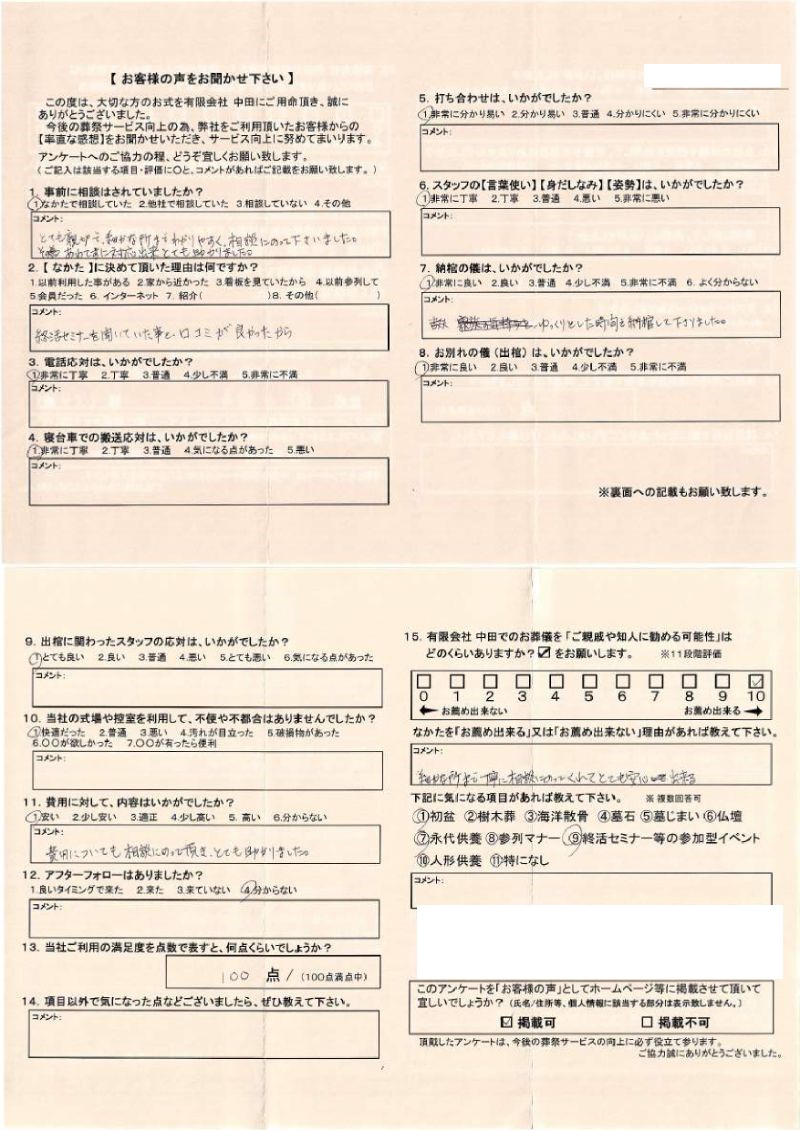 【 お客様の声をお聞かせ下さい 】
この度は、大切な方のお式を有限会社 中田にご用命頂き、誠に
ありがとうございました。
今後の葬祭サービス向上の為、弊社をご利用頂いたお客様からの
【率直な感想】をお聞かせいただき、サービス向上に努めてまいります。
アンケートへのご協力の程、どうぞ宜しくお願い致します。
(ご記入は該当する項目・評価に〇と、コメントがあればご記載をお願い致します。)
1. 事前に相談はされていましたか？
1.なかたで相談していた 2.他社で相談していた 3.相談していない 4.その他
コメント:
とても親切で、細かな所までわかりやすく、相談にのって下さいました。
あわてずに対応出来とても助かりました。
2.【 なかた 】に決めて頂いた理由は何ですか？
1.以前利用した事がある 2.家から近かった 3.看板を見ていたから 4.以前参列して
5会員だった 6. インターネット 7. 紹介( )8. その他( )
コメント:
終活セミナーを聞いていた事と、口コミが良かったから
3. 電話応対は、いかがでしたか？
1.非常に丁寧 2.丁寧 3.普通 4.少し不満 5.非常に不満
コメント:
4. 寝台車での搬送応対は、いかがでしたか？
1.非常に丁寧 2.丁寧 3.普通 4.気になる点があった 5.悪い
コメント:
5. 打ち合わせは、いかがでしたか？
1.非常に分かり易い 2.分かり易い 3.普通 4.分かりにくい 5.非常に分かりにくい
コメント:
6. スタッフの【言葉使い】【身だしなみ】【姿勢】は、いかがでしたか？
1.非常に丁寧 2.丁寧 3.普通 4.悪い 5.非常に悪い
コメント:
7. 納棺の儀は、いかがでしたか？
1.非常に良い 2.良い 3.普通 4.少し不満 5.非常に不満 6. よく分からない
コメント:
ゆっくりとした時間を納棺して下りました。
8. お別れの儀(出棺)は、いかがでしたか？
1.非常に良い 2.良い 3.普通 4.少し不満 5.非常に不満
コメント:
※裏面への記載もお願い致します。
9. 出棺に関わったスタッフの応対は、いかがでしたか？
1.とても良い 2.良い 3.普通 4.悪い 5.とても悪い 6.気になる点があった
コメント:
10. 当社の式場や控室を利用して、不便や不都合はありませんでしたか？
1.快適だった 2.普通 3.悪い 4.汚れが目立った 5.破損物があった
6.〇〇が欲しかった 7.〇〇が有ったら便利
コメント:
11. 費用に対して、内容はいかがでしたか？
1.安い 2.少し安い 3.適正 4.少し高い 5. 高い 6.分からない
コメント:
費用についても相談にのって頂き、とても助かりました。
12. アフターフォローはありましたか？
1.良いタイミングで来た 2.来た 3.来ていない 4.分からない
コメント:
13. 当社ご利用の満足度を点数で表すと、何点くらいでしょうか？
100 点 / (100点満点中)
14. 項目以外で気になった点などございましたら、ぜひ教えて下さい。
コメント:
15. 有限会社 中田でのお葬儀を「ご親戚や知人に勧める可能性」は
どのくらいありますか？☑をお願いします。 ※11段階評価
0 1 2 3 4 5 6 7 8 9 10
← お薦め出来ない お薦め出来る →
なかたを「お薦め出来る」又は「お薦め出来ない」理由があれば教えて下さい。
コメント:
細かな所まで丁寧に相談にのってくれてとても安心出来る
下記に気になる項目があれば教えて下さい。 ※ 複数回答可
①初盆 ②樹木葬 ③海洋散骨 ④墓石 ⑤墓じまい ⑥仏壇
⑦永代供養 ⑧参列マナー ⑨終活セミナー等の参加型イベント
⑩人形供養 ⑪特になし
コメント:
このアンケートを「お客様の声」としてホームページ等に掲載させて頂いて
宜しいでしょうか？(氏名/住所等、個人情報に該当する部分は表示致しません。)
☑ 掲載可 □ 掲載不可
頂戴したアンケートは、今後の葬祭サービスの向上に必ず役立て参ります。
ご協力誠にありがとうございました。